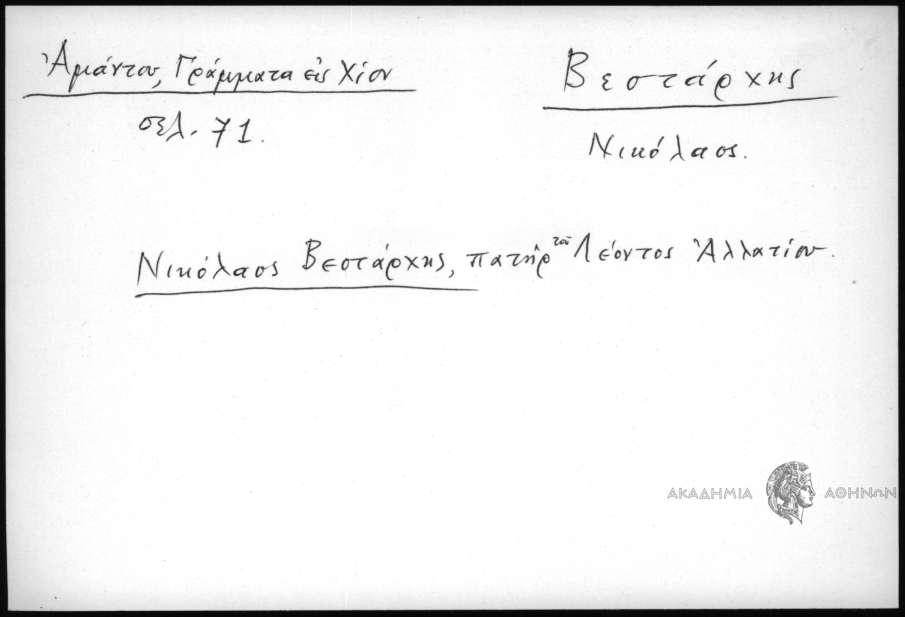 Ἀμάντου, Γράμματα εἰς Χίον
σελ. 71.
Βεστάρχης
Νικόλαος.
Νικόλαος Βεστάρχης, πατὴρ τοῦ Λέοντος Ἀλλατίου.
ΑΚΑΔΗΜΙΑ ΑΘΗΝΩΝ